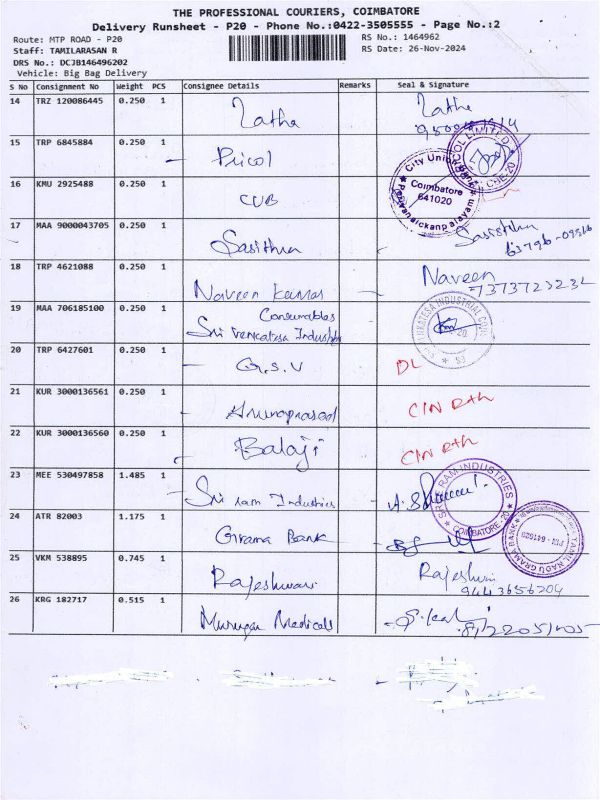 THE PROFESSIONAL COURIERS, COIMBATORE
Delivery Runsheet - P20 - Phone No.:0422-3505555 - Page No.:2
Route: MTP ROAD - P20
RS No.: 1464962
Staff: TAMILARASAN R
RS Date: 26-Nov-2024
DRS No.: DCJB146496202
Vehicle: Big Bag Delivery
S No Consignment No Weight PCS Consignee Details Remarks Seal & Signature
14 TRZ 120086445 0.250 1 Latha Latha
15 TRP 6845884 0.250 1 Pricol
16 KMU 2925488 0.250 1 CUB
City Union Bank
Coimbatore
641020
Periyanaickanpalayam
17 MAA 9000043705 0.250 1 Sasithra
18 TRP 4621088 0.250 1 Naveen Kumar Naveen
7373723232
19 MAA 706185100 0.250 1 Consumables
Sri Venkatesa Industrial
20 TRP 6427601 0.250 1 G.S.V DL
21 KUR 3000136561 0.250 1 Arunprasad
22 KUR 3000136560 0.250 1 Balaji
23 MEE 530497858 1.485 1 Sri ram Industries
SRI RAM INDUSTRIES
COIMBATORE-20
24 ATR 82003 1.175 1 Grama Bank
TAMIL NADU GRAMA BANK
25 VKM 538895 0.745 1 Rajeshwari
9443656204
26 KRG 182717 0.515 1 Murugan Medicals